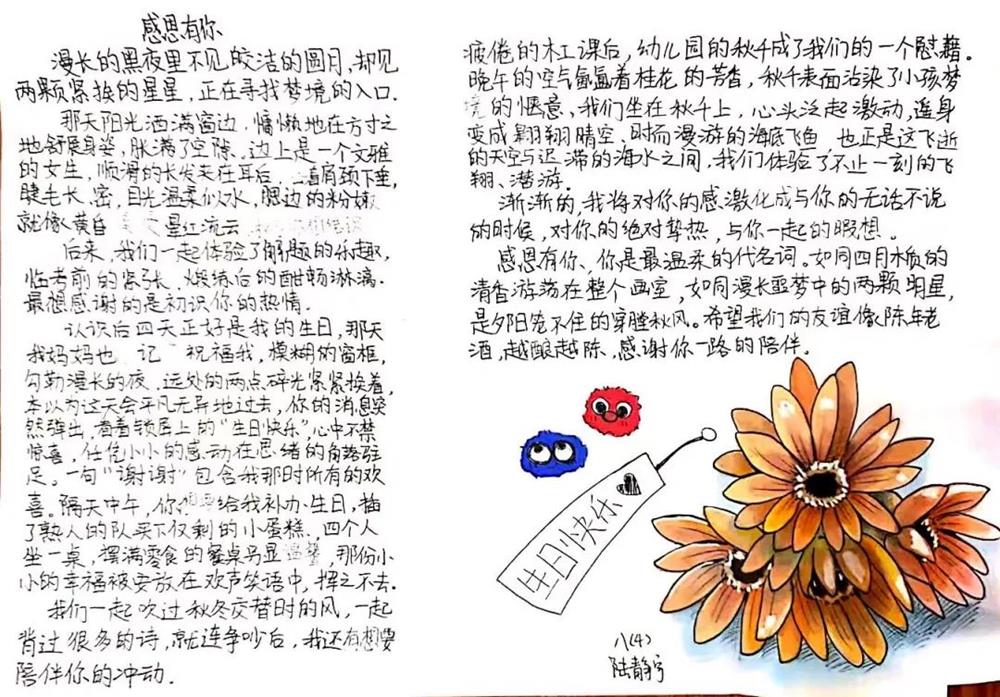 感恩有你
漫长的黑夜里不见皎洁的圆月,却见
两颗紧挨的星星,正在寻找梦境的入口.
那天阳光洒满窗边,慵懒地在方寸之
地舒展身姿,胀满了空隙.边上是一个文雅
的女生,顺滑的长发夹在耳后,着肩颈下垂,
睫毛长、密,目光温柔似水,腮边的粉嫩
就像黄昏 星红流云
后来,我们一起体验了解题的乐趣,
临考前的紧张、锻练后的酣畅淋漓.
最想感谢的是初识你的热情.
认识后四天正好是我的生日,那天
我妈妈也 记 祝福我,模糊的窗框,
勾勒漫长的夜,远处的两点碎光紧紧挨着,
本以为这天会平凡无异地过去,你的消息突
然弹出,看着锁屏上的“生日快乐”心中不禁
惊喜,任凭小小的感动在思绪的角落驻
足。一句“谢谢”包含我那时所有的欢
喜。隔天中午,你 给我补办生日,插
了熟人的队买下仅剩的小蛋糕.四个人
坐一桌,摆满零食的餐桌另显 ,那份小
小的幸福被安放在欢声笑语中,挥之不去.
我们一起吹过秋冬交替时的风,一起
背过很多的诗,就连争吵后,我还有想要
陪伴你的冲动.
疲倦的木工课后,幼儿园的秋千成了我们的一个慰藉.
晚午的空气氤氲着桂花的芳香,秋千表面沾染了小孩梦
境的惬意、我们坐在秋千上,心头泛起激动,遥身
变成翱翔晴空、时而漫游的海底飞鱼,也正是这飞逝
的天空与迟滞的海水之间,我们体验了不止一刻的飞
翔、潜游.
渐渐的,我将对你的感激化成与你的无话不说
的时候,对你的绝对挚热,与你一起的暇想.
感恩有你、你是最温柔的代名词。如同四月木质的
清香游荡在整个画室,如同漫长噩梦中的两颗明星,
是夕阳兜不住的穿膛秋风。希望我们的友谊像陈年老
酒,越酿越陈、感谢你一路的陪伴.
生日快乐
八(4)
陆静宇